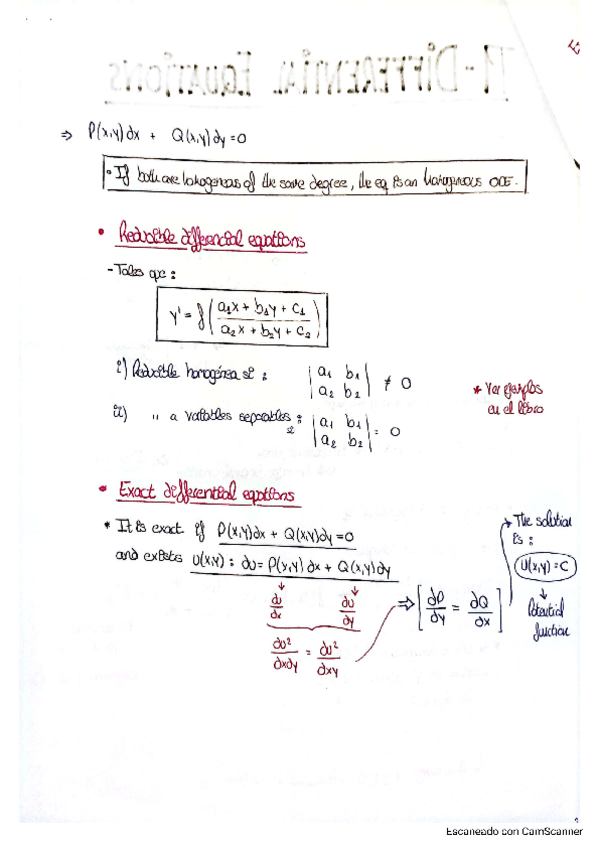 T1-DIFFERENTIAL EQUATIONS
⇒ P(x,y)dx + Q(x,y)dy=0
• If both are homogeneas of the same degree, the eq is an homogeneous ODE.
• Reducible differencial equations
- Tales que:
y' = f( (a1x + b1y + c1) / (a2x + b2y + c2) )
i) Reducible homogénea si: |a1 b1; a2 b2| ≠ 0
* Ver ejemplos
en el libro
ii) " a variables separables: |a1 b1; a2 b2| = 0
si
• Exact defferential equations
* It is exact if P(x,y)dx + Q(x,y)dy=0
and exists U(x,y): du= P(x,y)dx + Q(x,y)dy
↓ du/dx ↓ du/dy
du²/dxdy = du²/dxy
⇒ [∂P/dy = ∂Q/dx]
The solution
is:
U(x,y)=C
↓
Potential
function
Escaneado con CamScanner